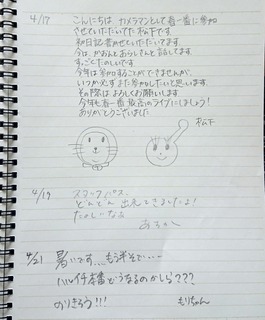 4/17
こんにちは、カメラマンとして春一番に参加
させていただいてた松下です
初日記書かせていただいてます
今は、かおんとあらしさんと話してます
すっごくたのしいです
今年は参加することができませんが、
いつか必ずまた参加したいと思います。
その際はよろしくお願いします
今年も春一番最高のライブにしましょう!
ありがとうございました
松下
4/19
スタッフパス、
どんどん出来てきましたよ!
たのしいなぁ
4/21
暑いです...もう半そで...
本番どうなるのかしら???
のりきろう!!
もりちゃん